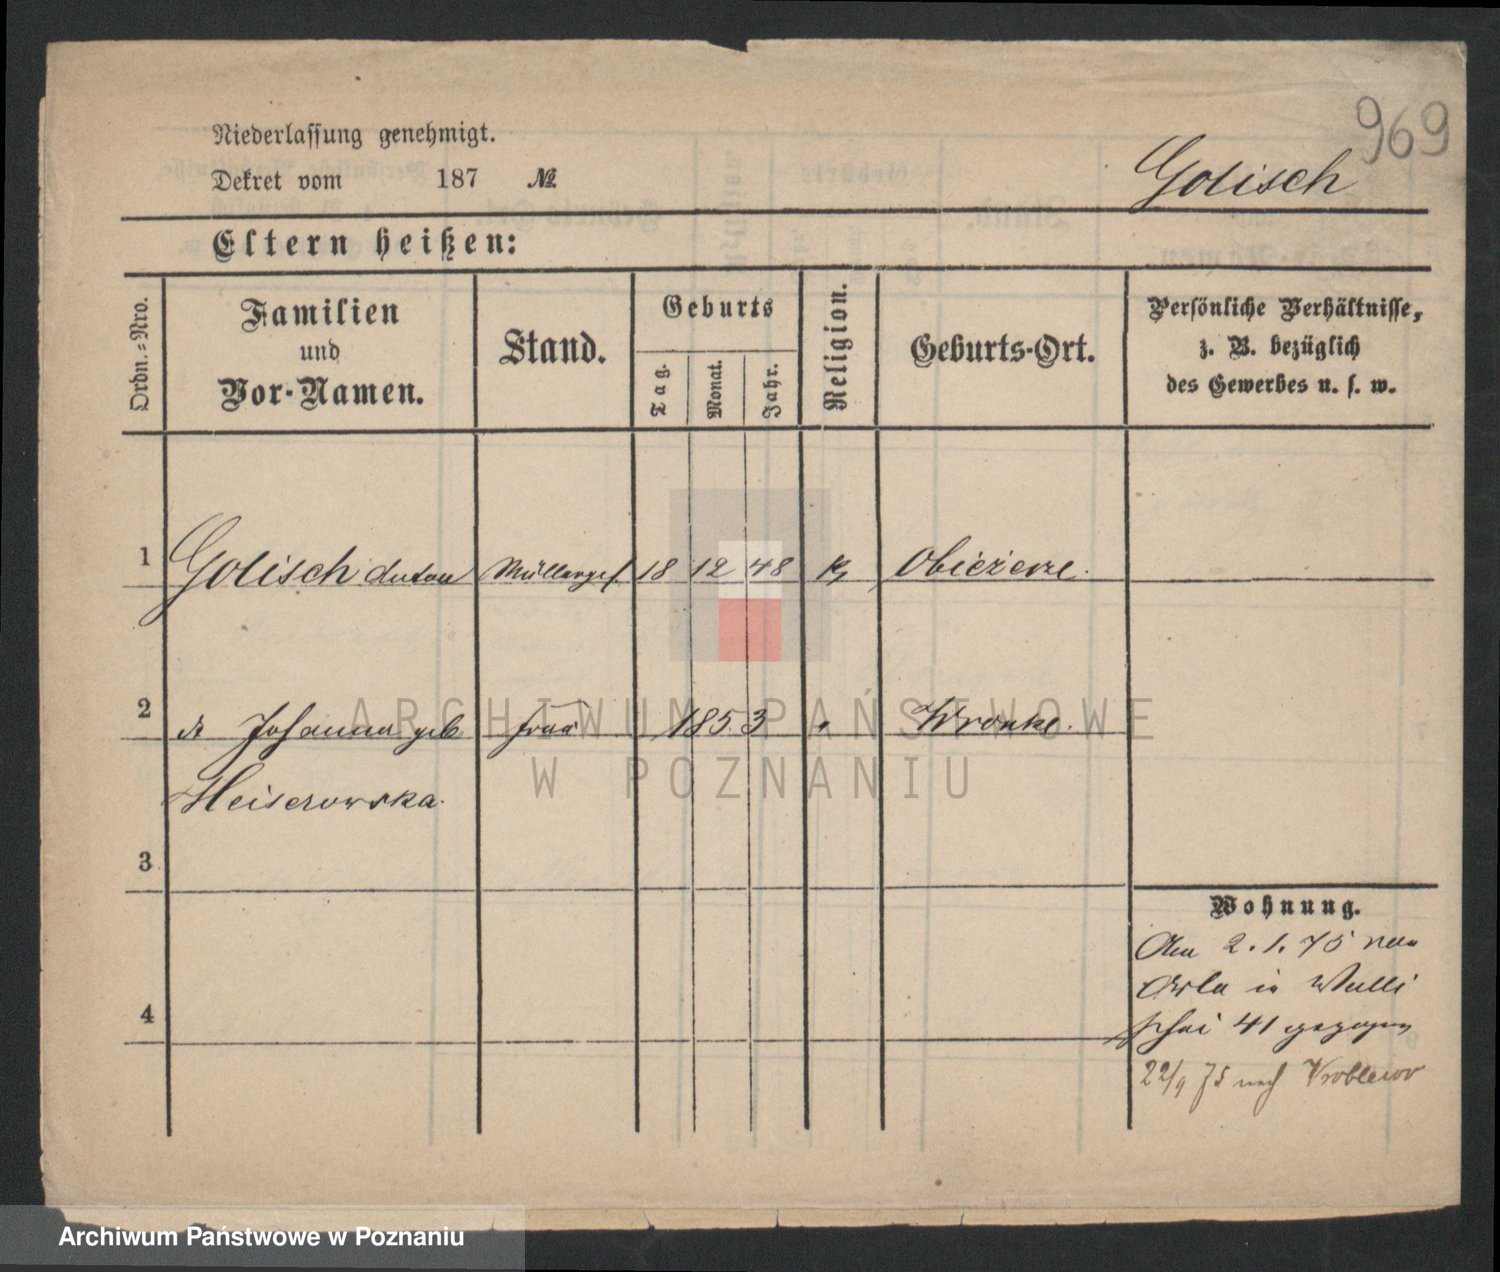 969
Niederlassung genehmigt.
Dekret vom 187 №
Golisch
Eltern heißen:
Ordn.=Nro.
Familien
und
Vor-Namen.
Stand.
Geburts
Tag.
Monat.
Jahr.
Religion.
Geburts-Ort.
Persönliche Verhältnisse,
z. B. bezüglich
des Gewerbes u. s. w.
1 Golisch Müllerges. 18 12 48 k Obieżerze.
2 Johanna geb frau 1853 " Wronke.
Heiserowska.
3
4
Wohnung.
Am 2. 1. 75 von
in Walli
schei 41 gezogen
22/9 75 nach Wroblewo
ARCHIWUM PAŃSTWOWE
W POZNANIU
Archiwum Państwowe w Poznaniu